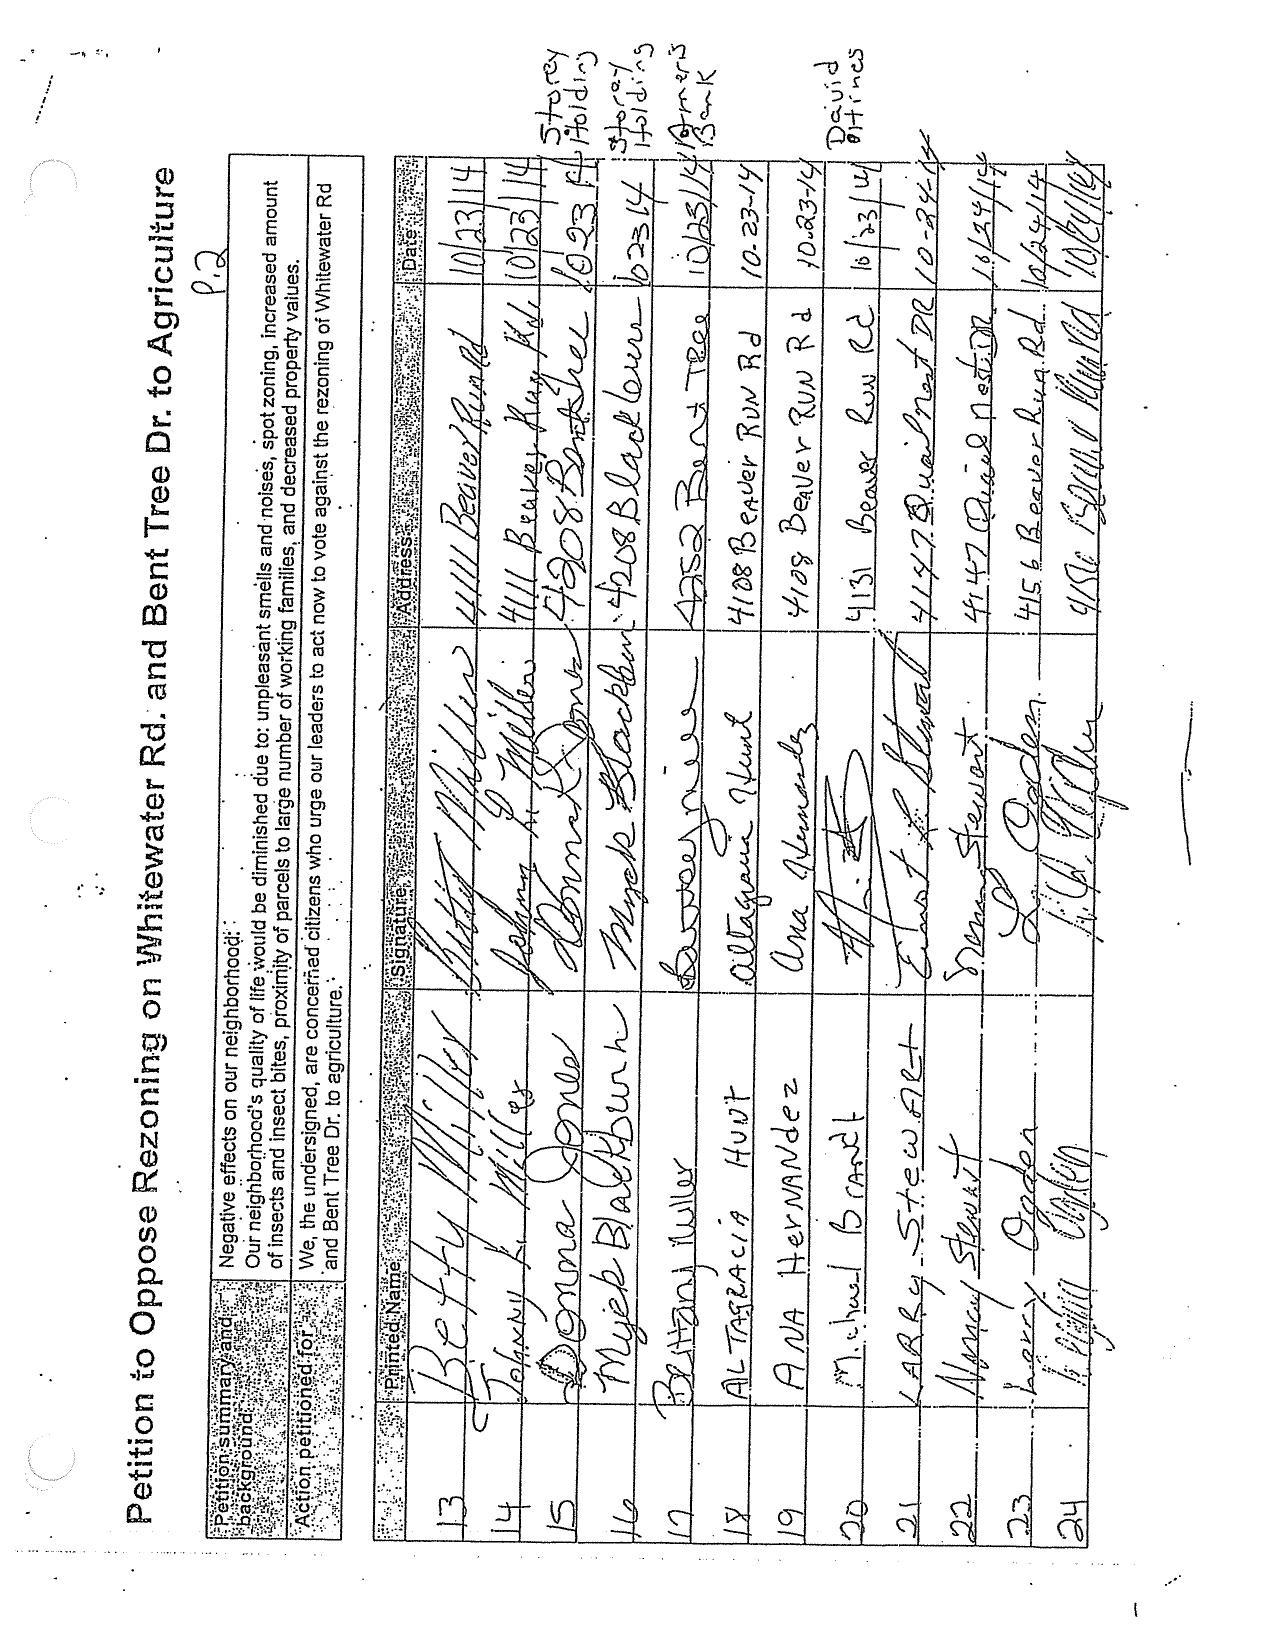 Petition to Oppose Rezoning on Whitewater Rd. and Bent Tree Dr. to Agriculture
P.2
Petition summary and background
Negative effects on our neighborhood:
Our neighborhood's quality of life would be diminished due to: unpleasant smells and noises, spot zoning, increased amount
of insects and insect bites, proximity of parcels to large number of working families, and decreased property values.
Action petitioned for
We, the undersigned, are concerned citizens who urge our leaders to act now to vote against the rezoning of Whitewater Rd
and Bent Tree Dr. to agriculture.
Printed Name Signature Address Date
13 Betty Miller Betty Miller 4111 Beaver Run Rd 10/23/14
14 Johnny L. Miller Johnny L Miller 4111 Beaver Run 10/23/14
15 Donna Jones Donna Jones 4208 Bent Tree 10 23 14 Storey Holding
16 Myek Blackburn Myek Blackburn 4208 1023 14 Storey Holding
17 Brittany Miller 4252 Bent Tree 10/23/14 Ameris Bank
18 ALTAGRACIA HUNT Altagracia Hunt 4108 BEAVER RUN Rd 10-23-14
19 ANA HerNANdez Ana Hernandez 4108 BEAVER RUN Rd 10-23-14
20 Michael Brandt 4131 Beaver Run Rd 10/23/14 David
21 LARRY Stewart 4147 Quail nest DR 10-24-14
22 Nancy Stewart Stewart 4147 Quail nest DR 10/24/14
23 Larry Ogden L Ogden 4156 Beaver Run Rd 10/24/14
24 4156 10/24/14